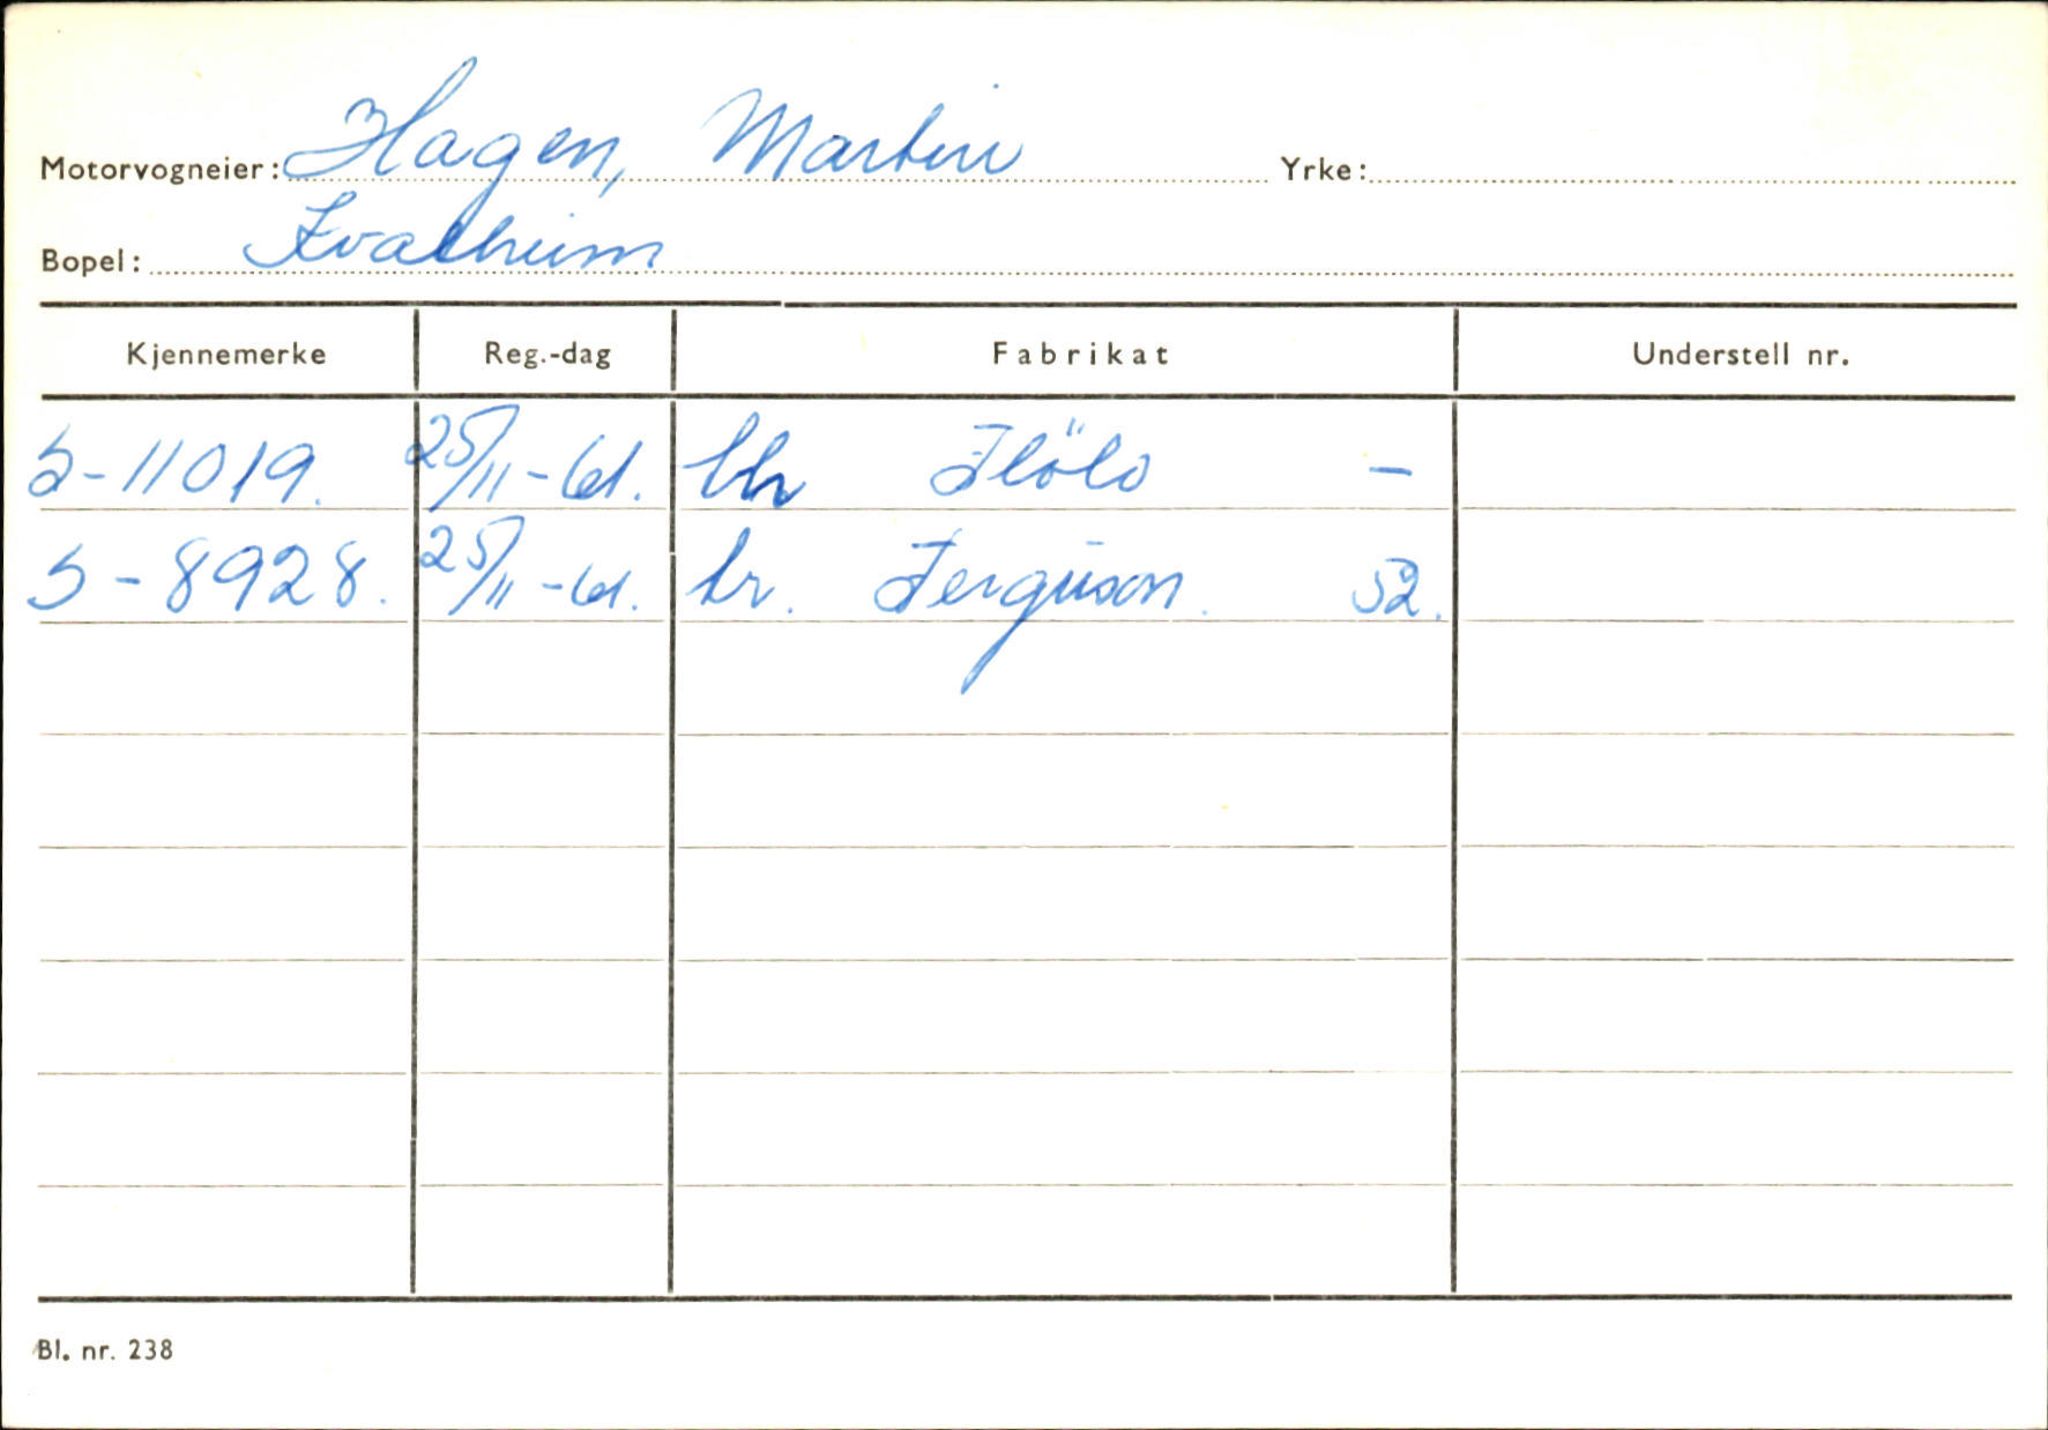 Motorvogneier: Hagen, Martin Yrke:
Bopel: Kvalheim
Kjennemerke Reg.-dag Fabrikat Understell nr.
S-11019. 25/11-61. Flölo -
S-8928. 25/11-61. tr. Ferguson. 52.
Bl. nr. 238